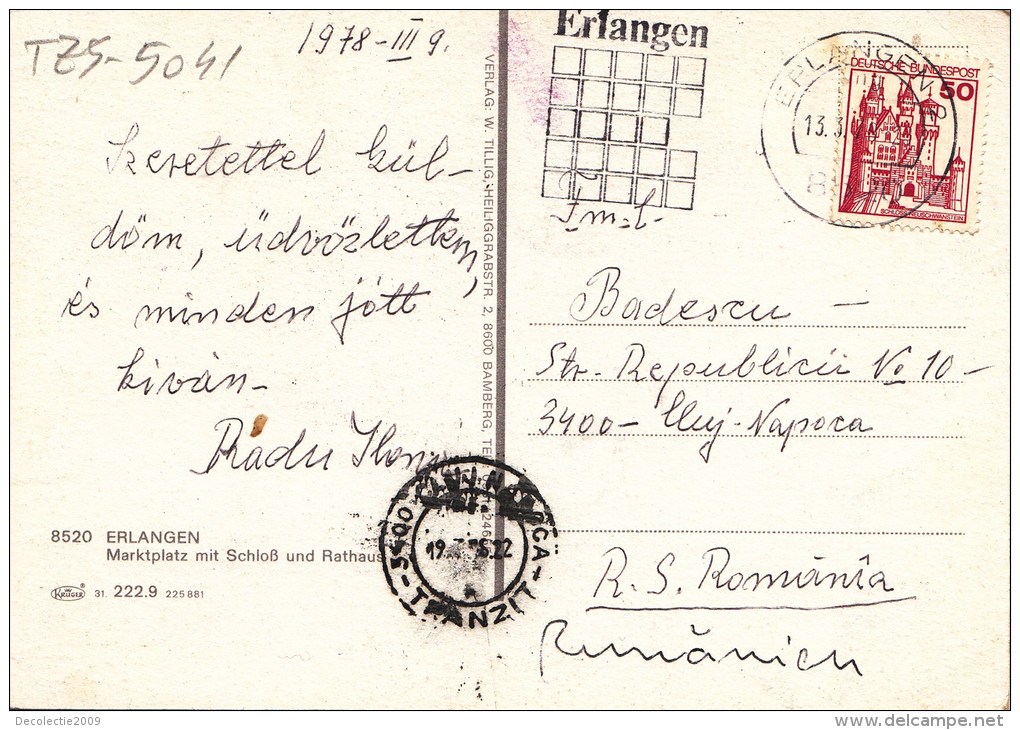 TZS-5041
1978-III 9.
Szeretettel kül-
döm, üdvözletem,
és minden jótt
kíván-
Radu Ilona
8520 ERLANGEN
Marktplatz mit Schloß und Rathaus
KRÜGER 31. 222.9 225 881
VERLAG: W. TILLIG, HEILIGGRABSTR. 2, 8600 BAMBERG, TEL.
3400 CLUJ NAPOCA
19. 22
TRANZIT
Erlangen
ERLANGEN 2
13.3.
DEUTSCHE BUNDESPOST
50
SCHLOSS NEUSCHWANSTEIN
Badescu -
Str. Republicii No 10 -
3400 - Cluj-Napoca
R. S. România
Rumänien
Decolectie2009
www.delcampe.net